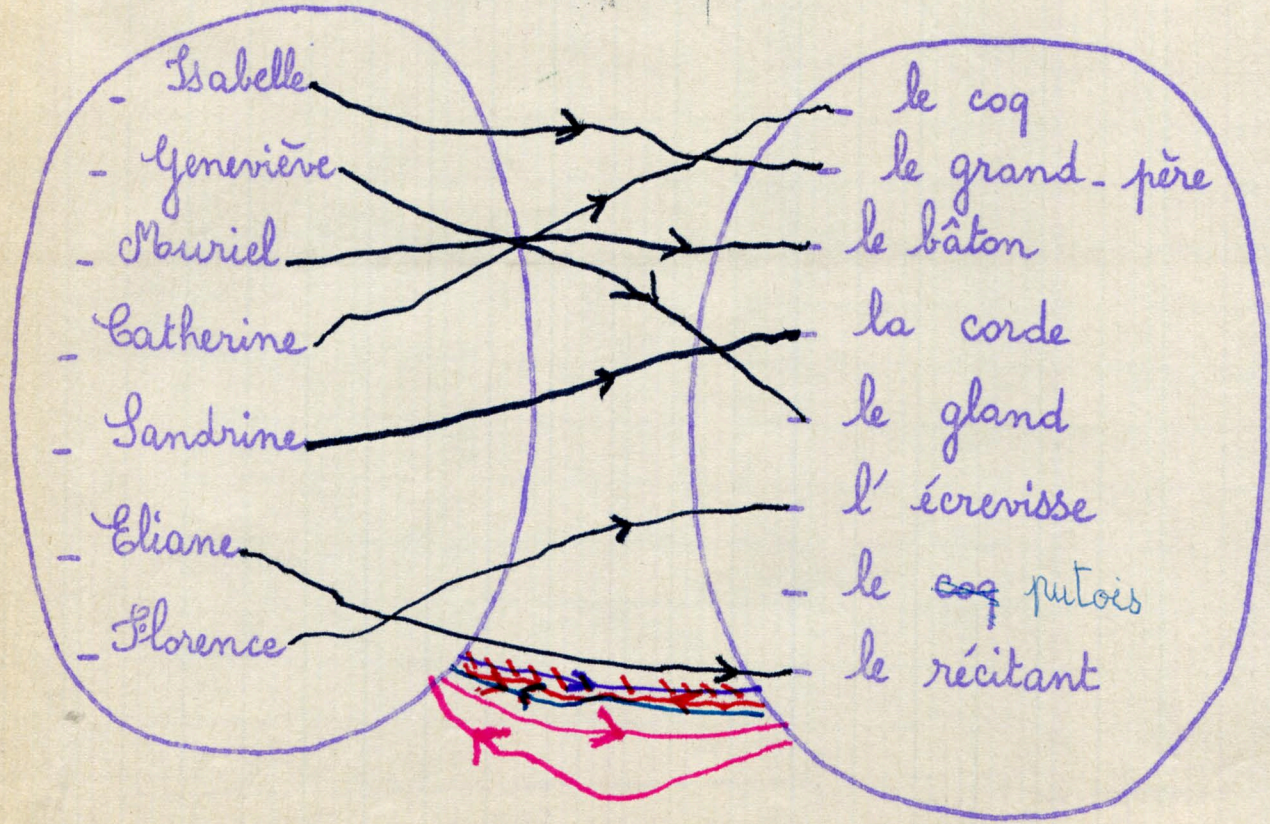 - Isabelle
- Geneviève
- Muriel
- Catherine
- Sandrine
- Eliane
- Florence
- le coq
- le grand-père
- le bâton
- la corde
- le gland
- l'écrevisse
- le coq putois
- le récitant